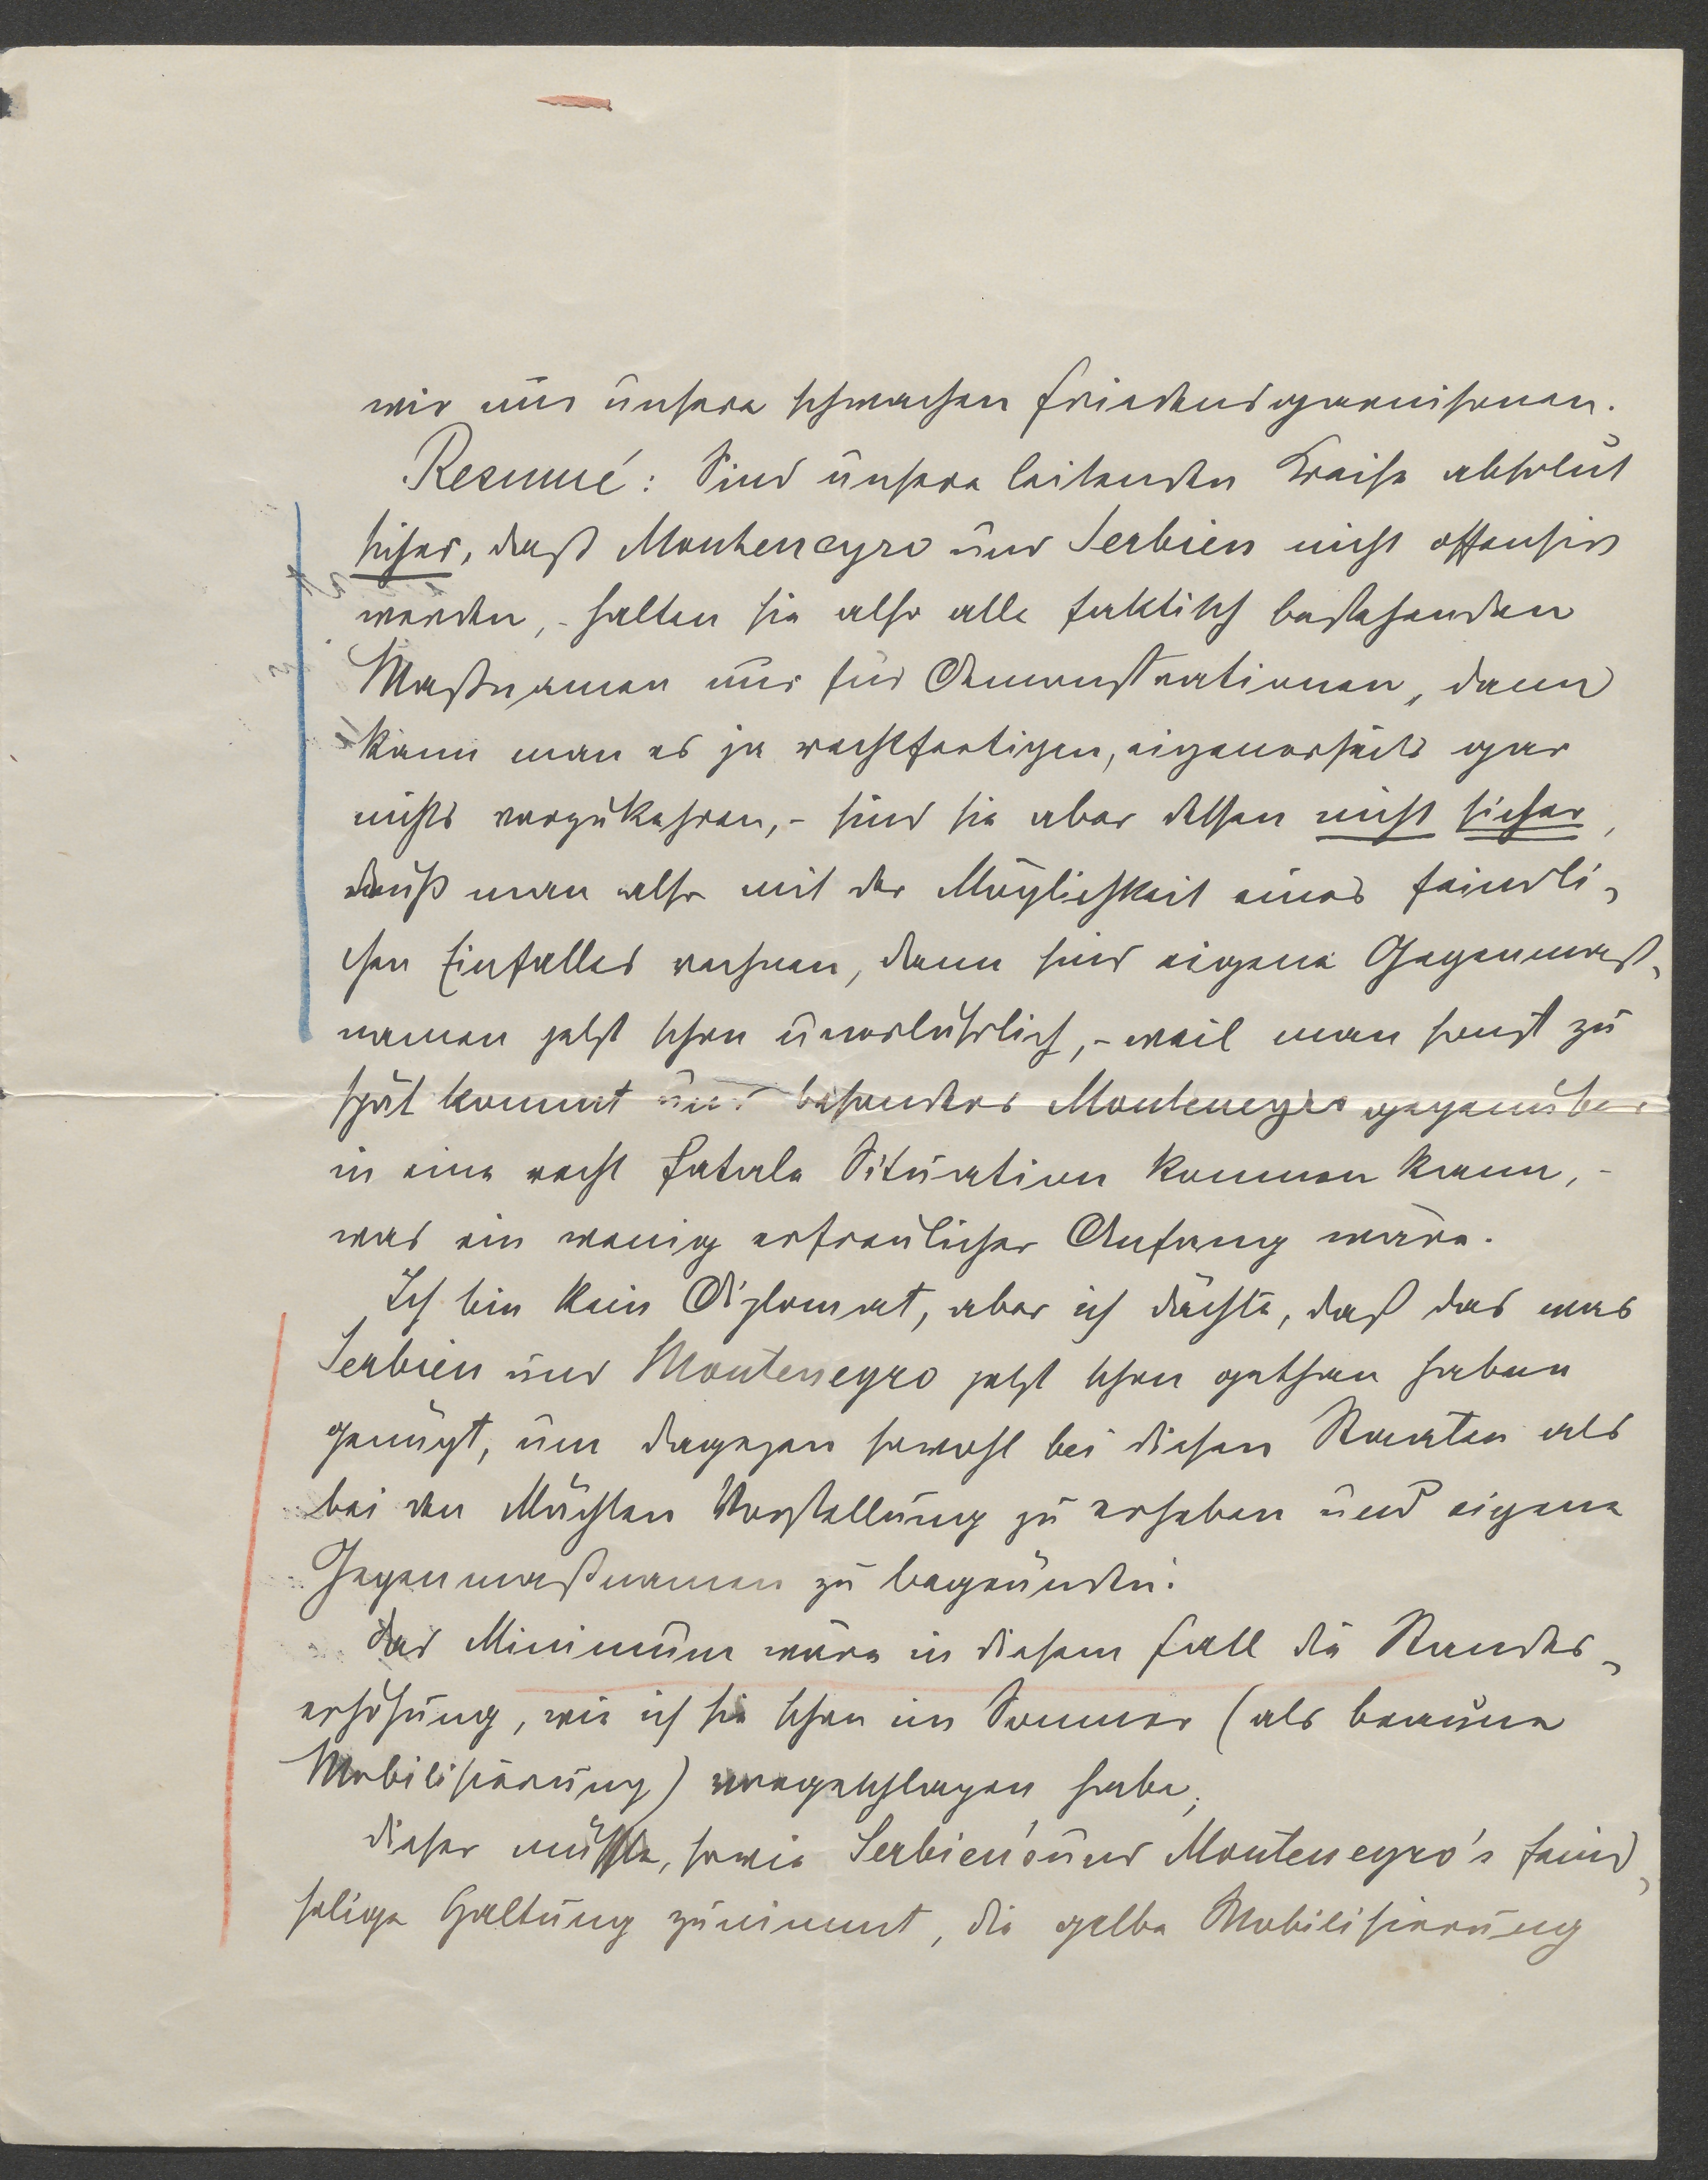 wir nur unsere schwachen Friedensgarnisonen.
Resumé: Sind unsere leitenden Kreise absolut
sicher, daß Montenegro und Serbien nicht offensiv
werden, - halten sie also alle faktisch bestehenden
Maßnamen nur für Demonstrationen, dann
kann man es ja rechtfertigen, eigenerseits gar
nichts vorzukehren, - sind sie aber dessen nicht sicher,
muß man also mit der Möglichkeit eines feindli-
chen Einfalles rechnen, dann sind eigene Gegenmaß-
namen jetzt schon unerläßlich, - weil man sonst zu
spät kommt und besonders Montenegro gegenüber
in eine recht fatale Situation kommen kann, -
was ein wenig erfreulicher Anfang wäre.
Ich bin kein Diplomat, aber ich dächte, daß das was
Serbien und Montenegro jetzt schon gethan haben
genügt, um dagegen sowohl bei diesen Staaten als
bei den Mächten Vorstellung zu erheben und eigene
Gegenmaßnamen zu begründen.
Das Minimum wäre in diesem Fall die Standes-
erhöhung, wie ich sie schon im Sommer (als braune
Mobilisierung) vorgeschlagen habe;
dieser müßte, sowie Serbien's und Montenegro's feind-
selige Haltung zunimmt, die gelbe Mobilisierung